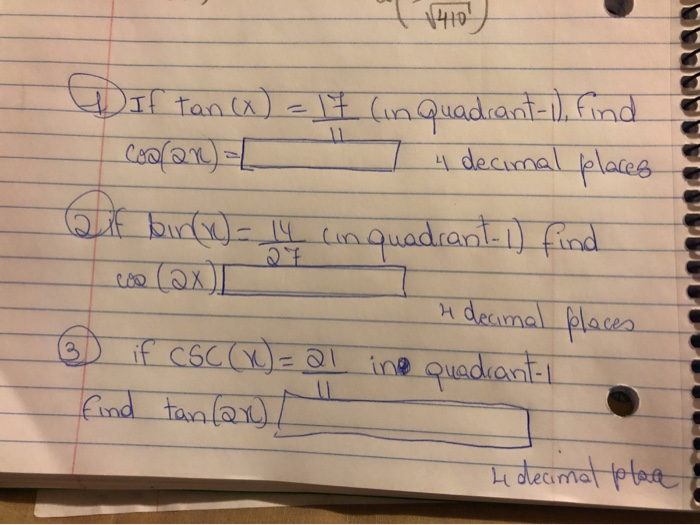 √410
1 If tan(x) = 17/11 (in quadrant-1), find
cos(2x) = 4 decimal places
2 if sin(x) = 14/27 (in quadrant-1) find
cos (2x)
4 decimal places
3 if csc(x) = 21/11 in quadrant-1
find tan(2x)
4 decimal place